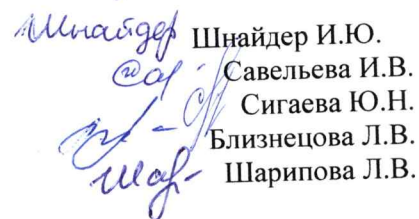 Шнайдер Шнайдер И.Ю.
Савельева И.В.
Сигаева Ю.Н.
Близнецова Л.В.
Шарипова Л.В.